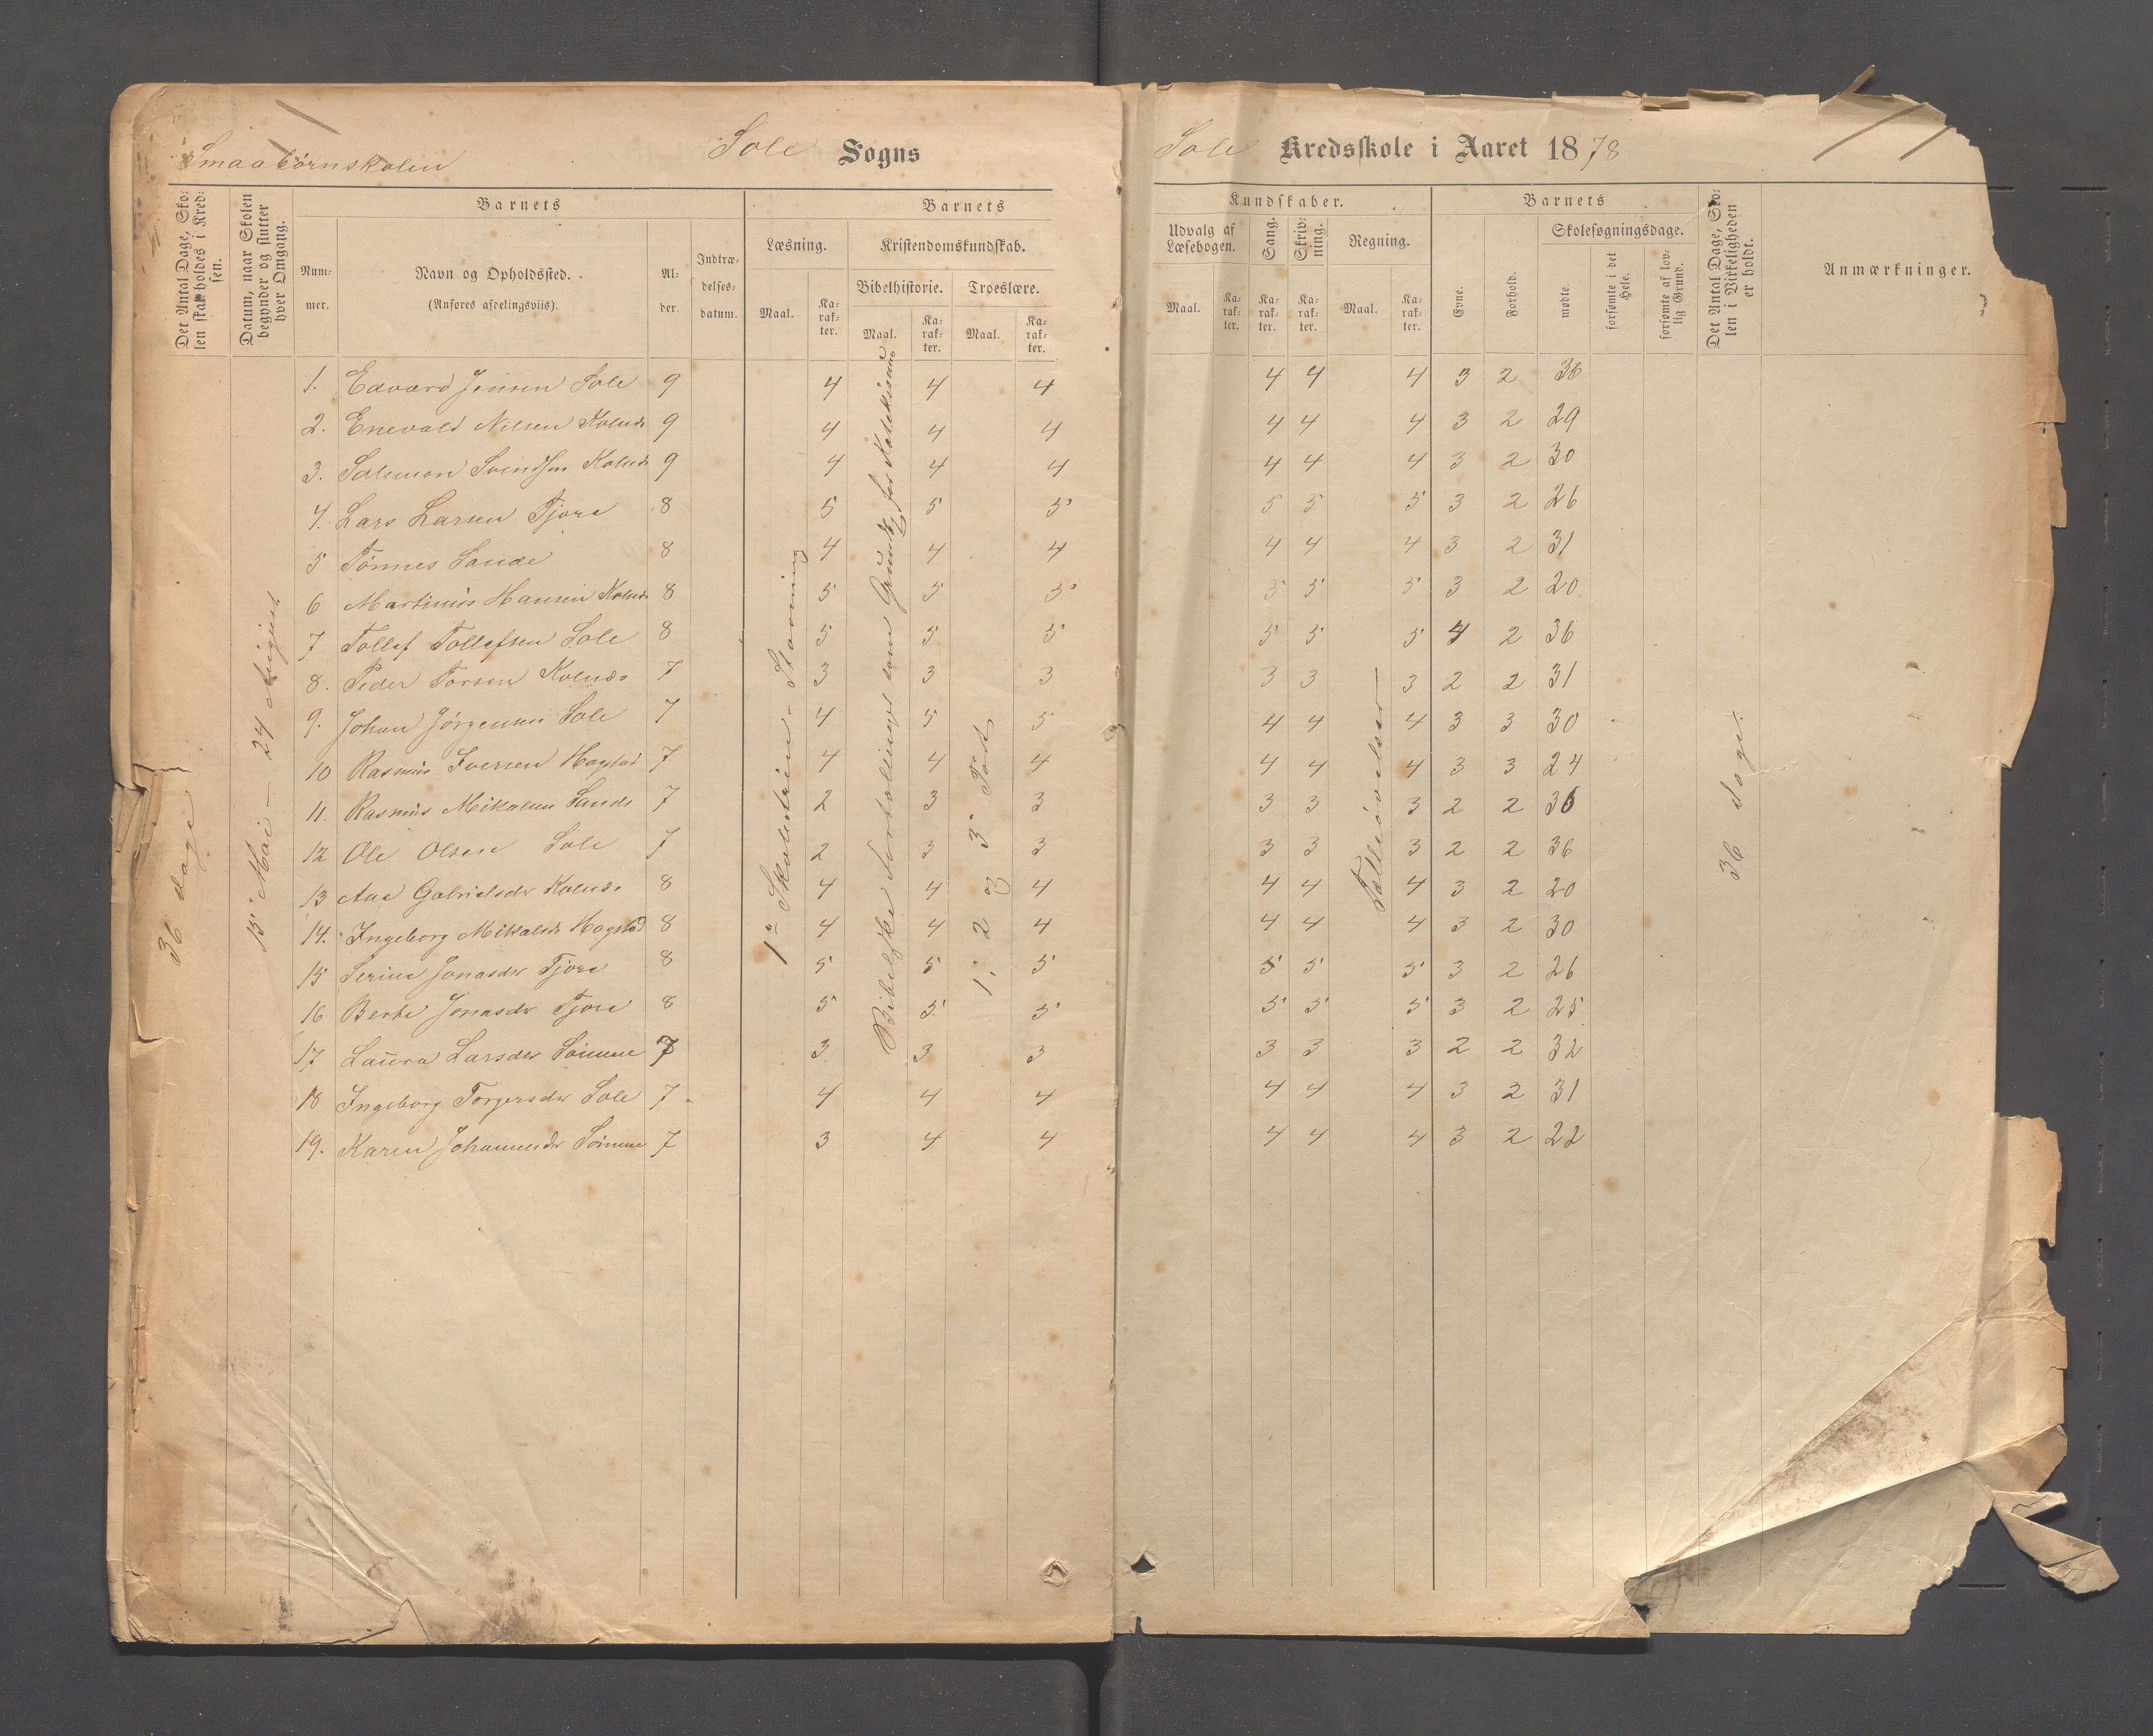 Smaabørnskolen
Sole Sogns
Sole Kredsskole i Aaret 1878
Det Antal Dage, Skolen skal holdes i Kredsen.
Datum, naar Skolen begynder og slutter hver Omgang.
Barnets
Nummer.
Navn og Opholdssted.
(Anføres afdelingsviis).
Alder.
Indtrædelsesdatum.
Barnets
Læsning.
Maal.
Karakter.
Kristendomskundskab.
Bibelhistorie.
Maal.
Karakter.
Troeslære.
Maal.
Karakter.
Kundskaber.
Udvalg af Læsebogen.
Maal.
Karakter.
Sang.
Karakter.
Skrivning.
Karakter.
Regning.
Maal.
Karakter.
Barnets
Evne.
Forhold.
Skolesøgningsdage.
mødte.
forsømte i det Hele.
forsømte af lovlig Grund.
Det Antal Dage, Skolen i Virkeligheden er holdt.
Anmærkninger.
36 dage
15 Mai – 24 August
1ª Skoletrin – Stavning
Bibelske Fortællinger som
1, 2 og 3 Part
36 dage.
1. Edvard Jensen Sole 9 4 4 4 4 4 4 3 2 36
2. Enevald Nilsen Kolnæs 9 4 4 4 4 4 4 3 2 29
3. Salemon Svendsen Kolnæs 9 4 4 4 4 4 4 3 2 30
4. Lars Larsen Tjore 8 5 5 5 5 5 5 3 2 26
5 Tønnes Sande 8 4 4 4 4 4 4 3 2 31
6 Martinius Hansen Kolnæs 8 5 5 5 5 5 5 3 2 20
7 Tollef Tollefsen Sole 8 5 5 5 5 5 5 4 2 36
8. Peder Torsen Kolnæs 7 3 3 3 3 3 3 2 2 31
9. Johan Jörgensen Sole 7 4 5 5 4 4 4 3 3 30
10 Rasmus Iversen Hogstad 7 4 4 4 4 4 4 3 3 24
11. Rasmus Mikalsen Sande 7 2 3 3 3 3 3 2 2 36
12 Ole Olsen Sole 7 2 3 3 3 3 3 2 2 36
13 Ane Gabrielsdr Kolnæs 8 4 4 4 4 4 4 3 2 20
14. Ingeborg Mikalsdr Hogstad 8 4 4 4 4 4 4 3 2 30
15 Serine Jonasdr Tjore 8 5 5 5 5 5 5 3 2 26
16 Berte Jonasdr Tjore 8 5 5 5 5 5 5 3 2 25
17 Laura Larsdr Sömme 7 3 3 3 3 3 3 2 2 32
18 Ingeborg Torgersdr Sole 7 4 4 4 4 4 4 3 2 31
19. Karen Johannesdr Sömme 7 3 4 4 4 4 4 3 2 22